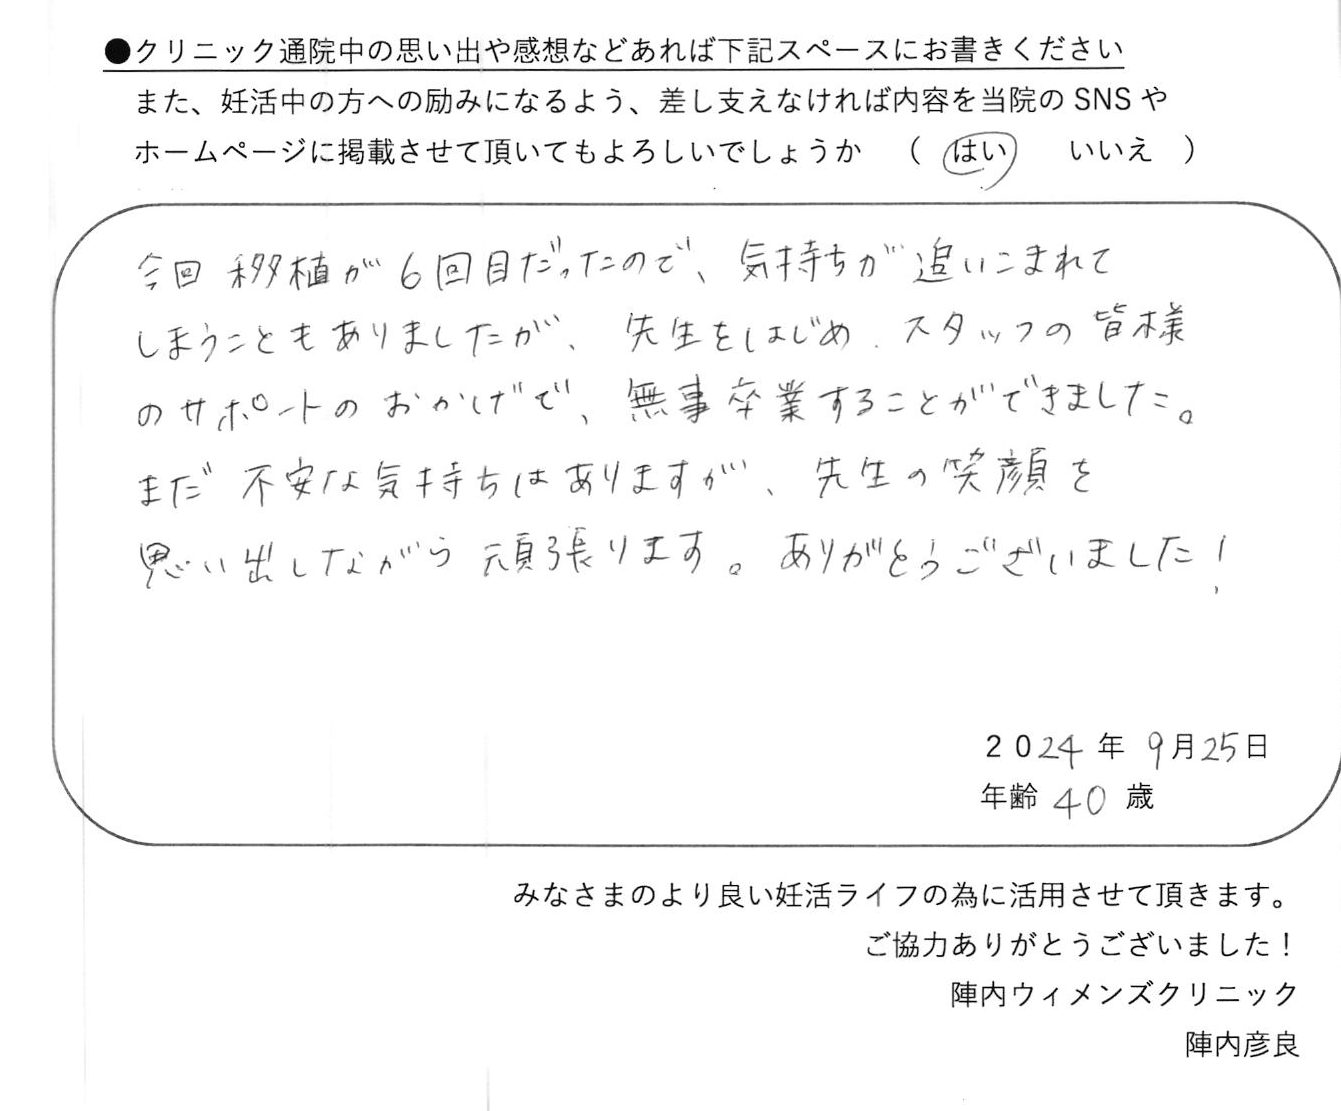 ●クリニック通院中の思い出や感想などあれば下記スペースにお書きください
また、妊活中の方への励みになるよう、差し支えなければ内容を当院の SNS や
ホームページに掲載させて頂いてもよろしいでしょうか （ はい いいえ ）
今回 移植が 6回目だったので、気持ちが 追いこまれて
しまうこともありましたが、先生をはじめ、スタッフの皆様
のサポートのおかげで、無事卒業することができました。
まだ 不安な気持ちはありますが、先生の笑顔を
思い出しながら 頑張ります。ありがとうございました！
2024 年 9月25日
年齢 40 歳
みなさまのより良い妊活ライフの為に活用させて頂きます。
ご協力ありがとうございました！
陣内ウィメンズクリニック
陣内彦良